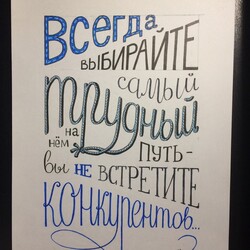 Всегда
выбирайте
самый
трудный
на нём путь –
вы не встретите
конкурентов...